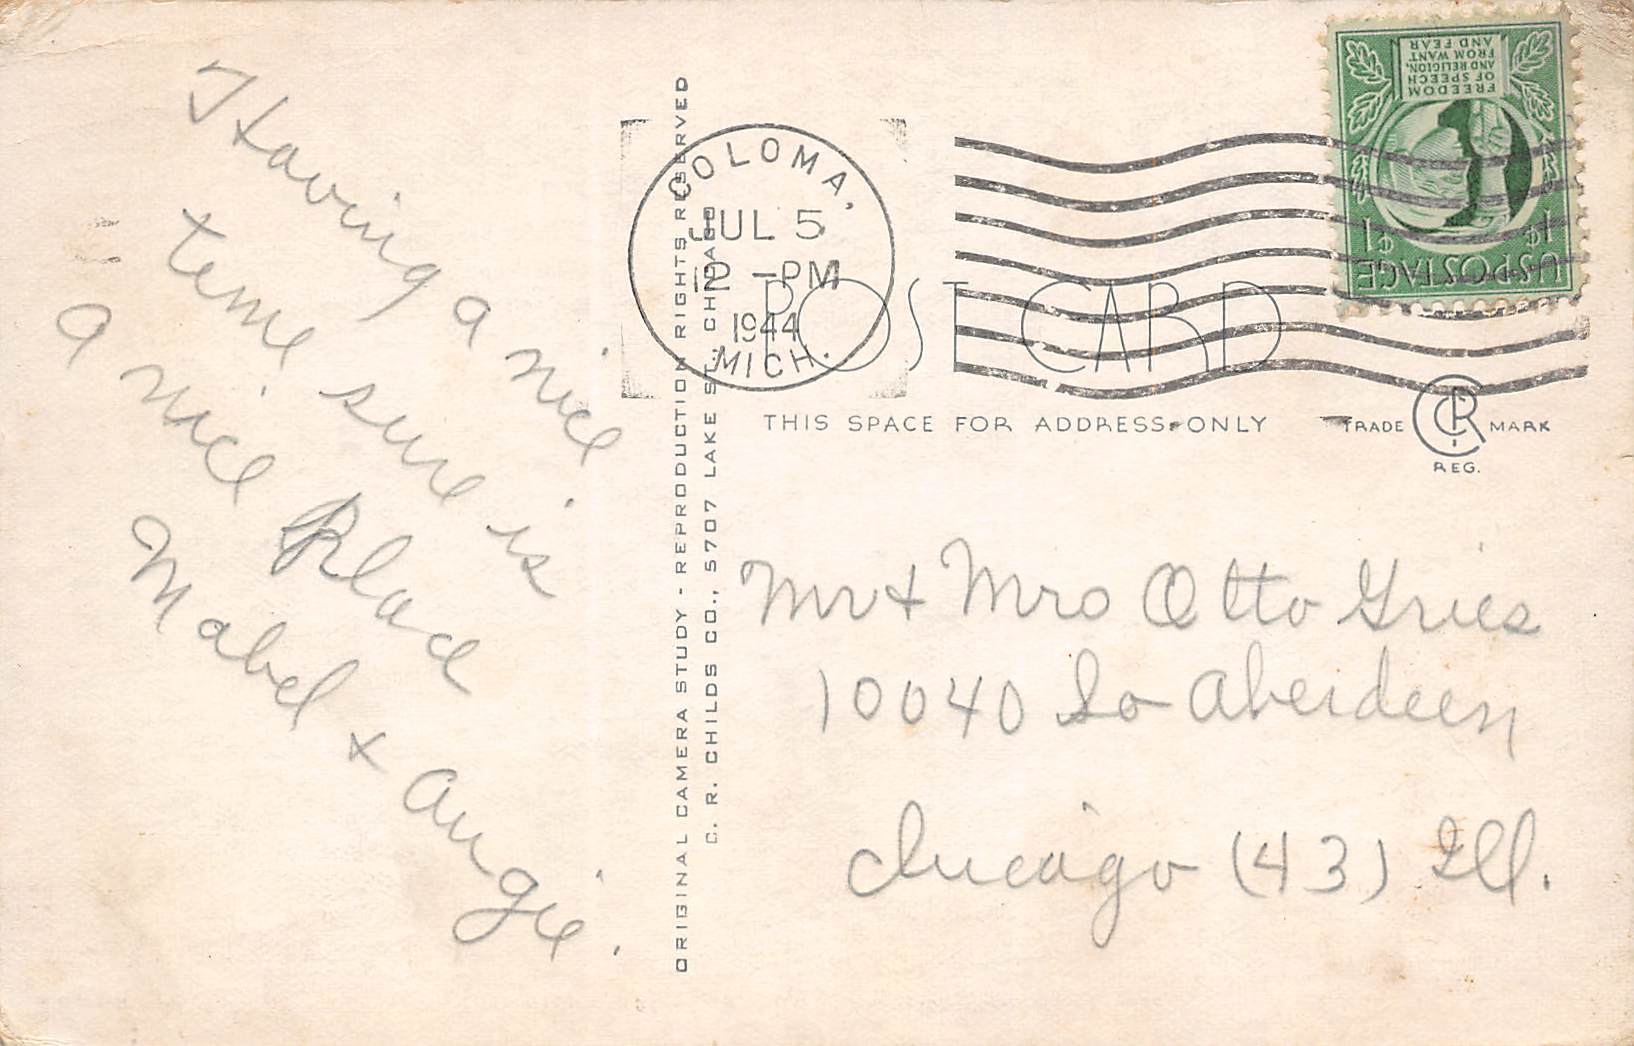 Having a nice
time sure is
a nice Place
Mabel + Angie.
ORIGINAL CAMERA STUDY - REPRODUCTION RIGHTS RESERVED
C. R. CHILDS CO., 5707 LAKE ST., CHICAGO
COLOMA,
JUL 5
12 -PM
1944
MICH.
FREEDOM
OF SPEECH
AND RELIGION,
FROM WANT
AND FEAR
1¢ 1¢
U.S. POSTAGE
POST CARD
THIS SPACE FOR ADDRESS ONLY
TRADE CRC MARK
REG.
Mr + Mrs Otto Gries
10040 So Aberdeen
Chicago (43) Ill.